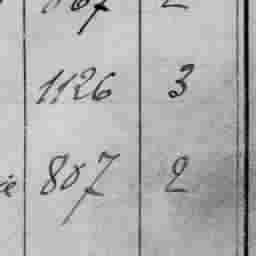 1126 3
807 2